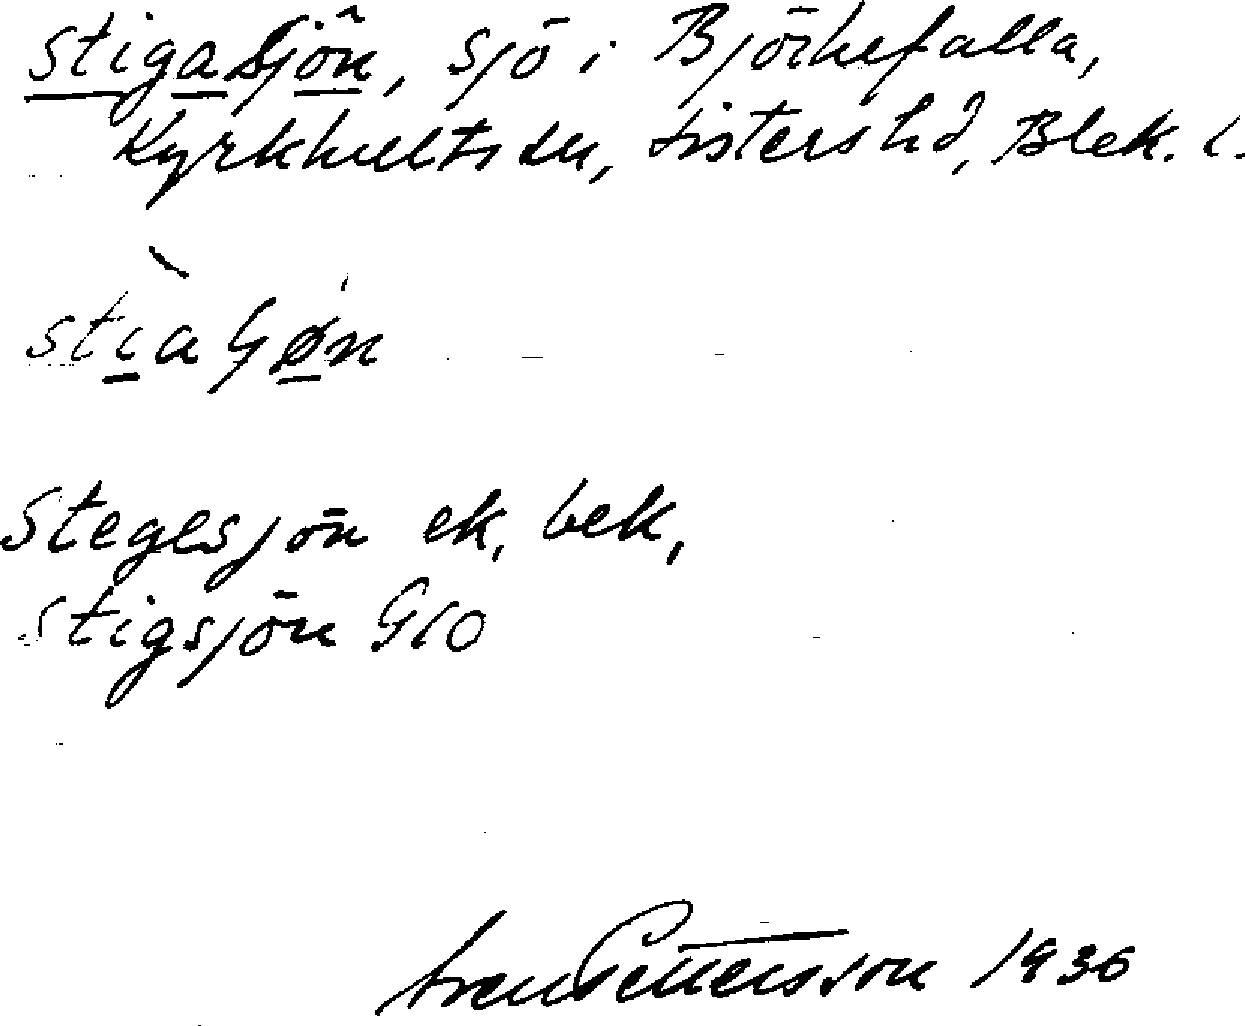 Stigasjön, sjö i Björkefalla,
Kyrkhults sn, Listers hd, Blek. l.
Stegesjön ek, bek,
Stigsjön GLO
Sven Pettersson 1936